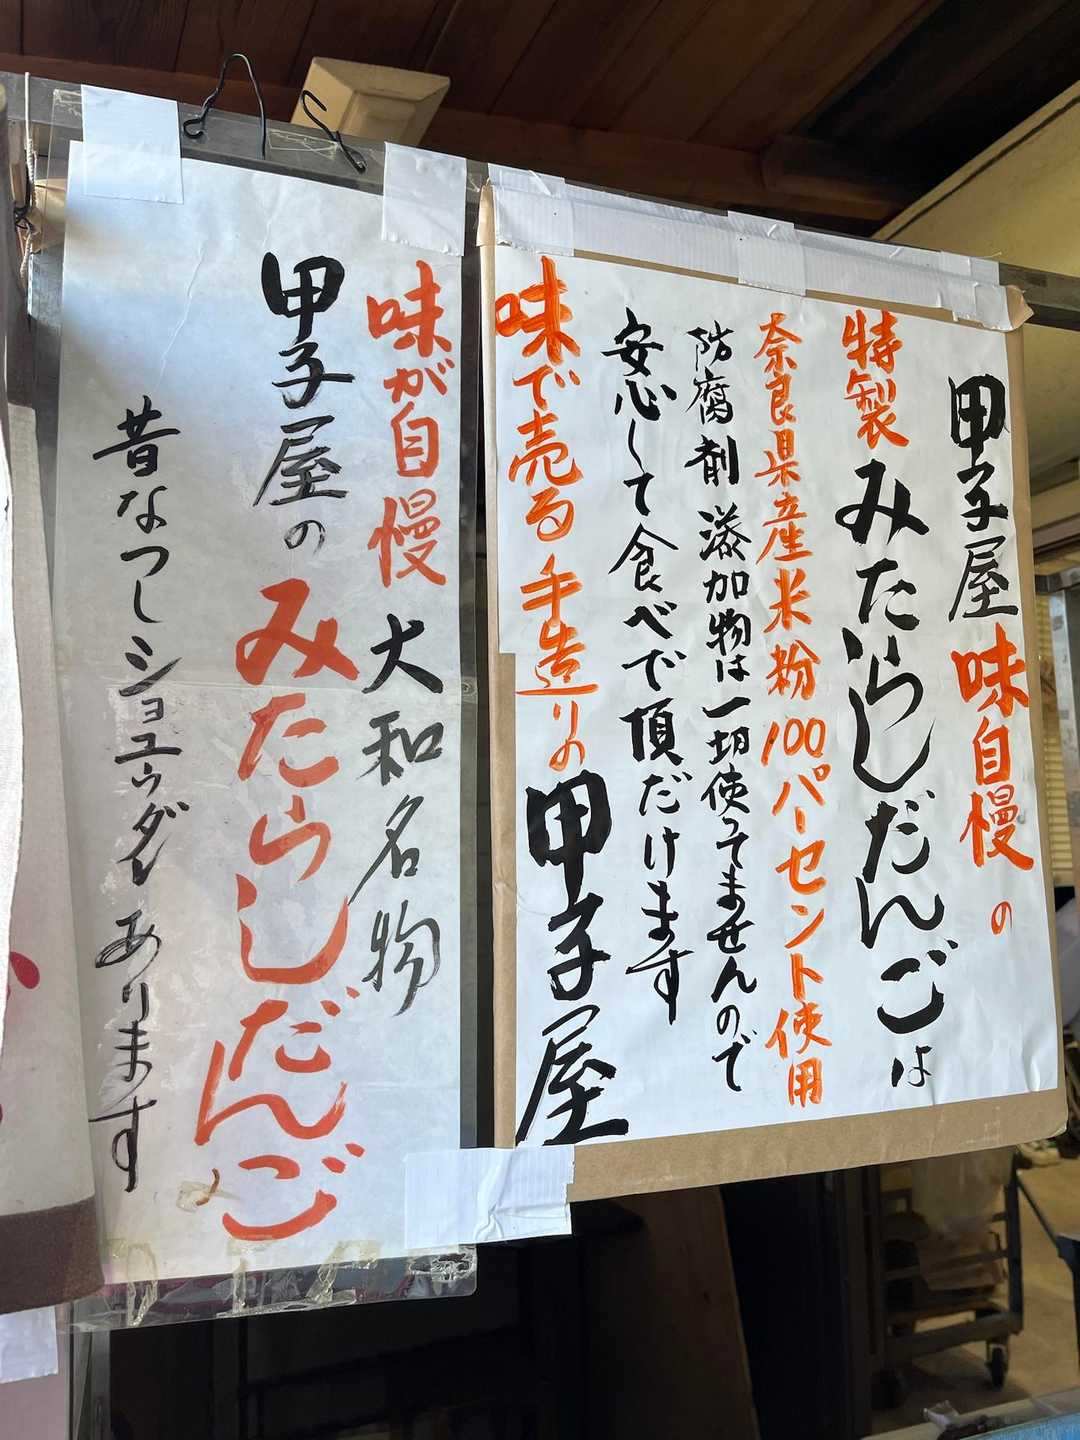 甲子屋味自慢の
特製みたらしだんごは
奈良県産米粉100パーセント使用
防腐剤添加物は一切使ってませんので
安心して食べで頂だけます
味で売る手造りの甲子屋
味が自慢大和名物
甲子屋のみたらしだんご
昔なつしショユウダレあります